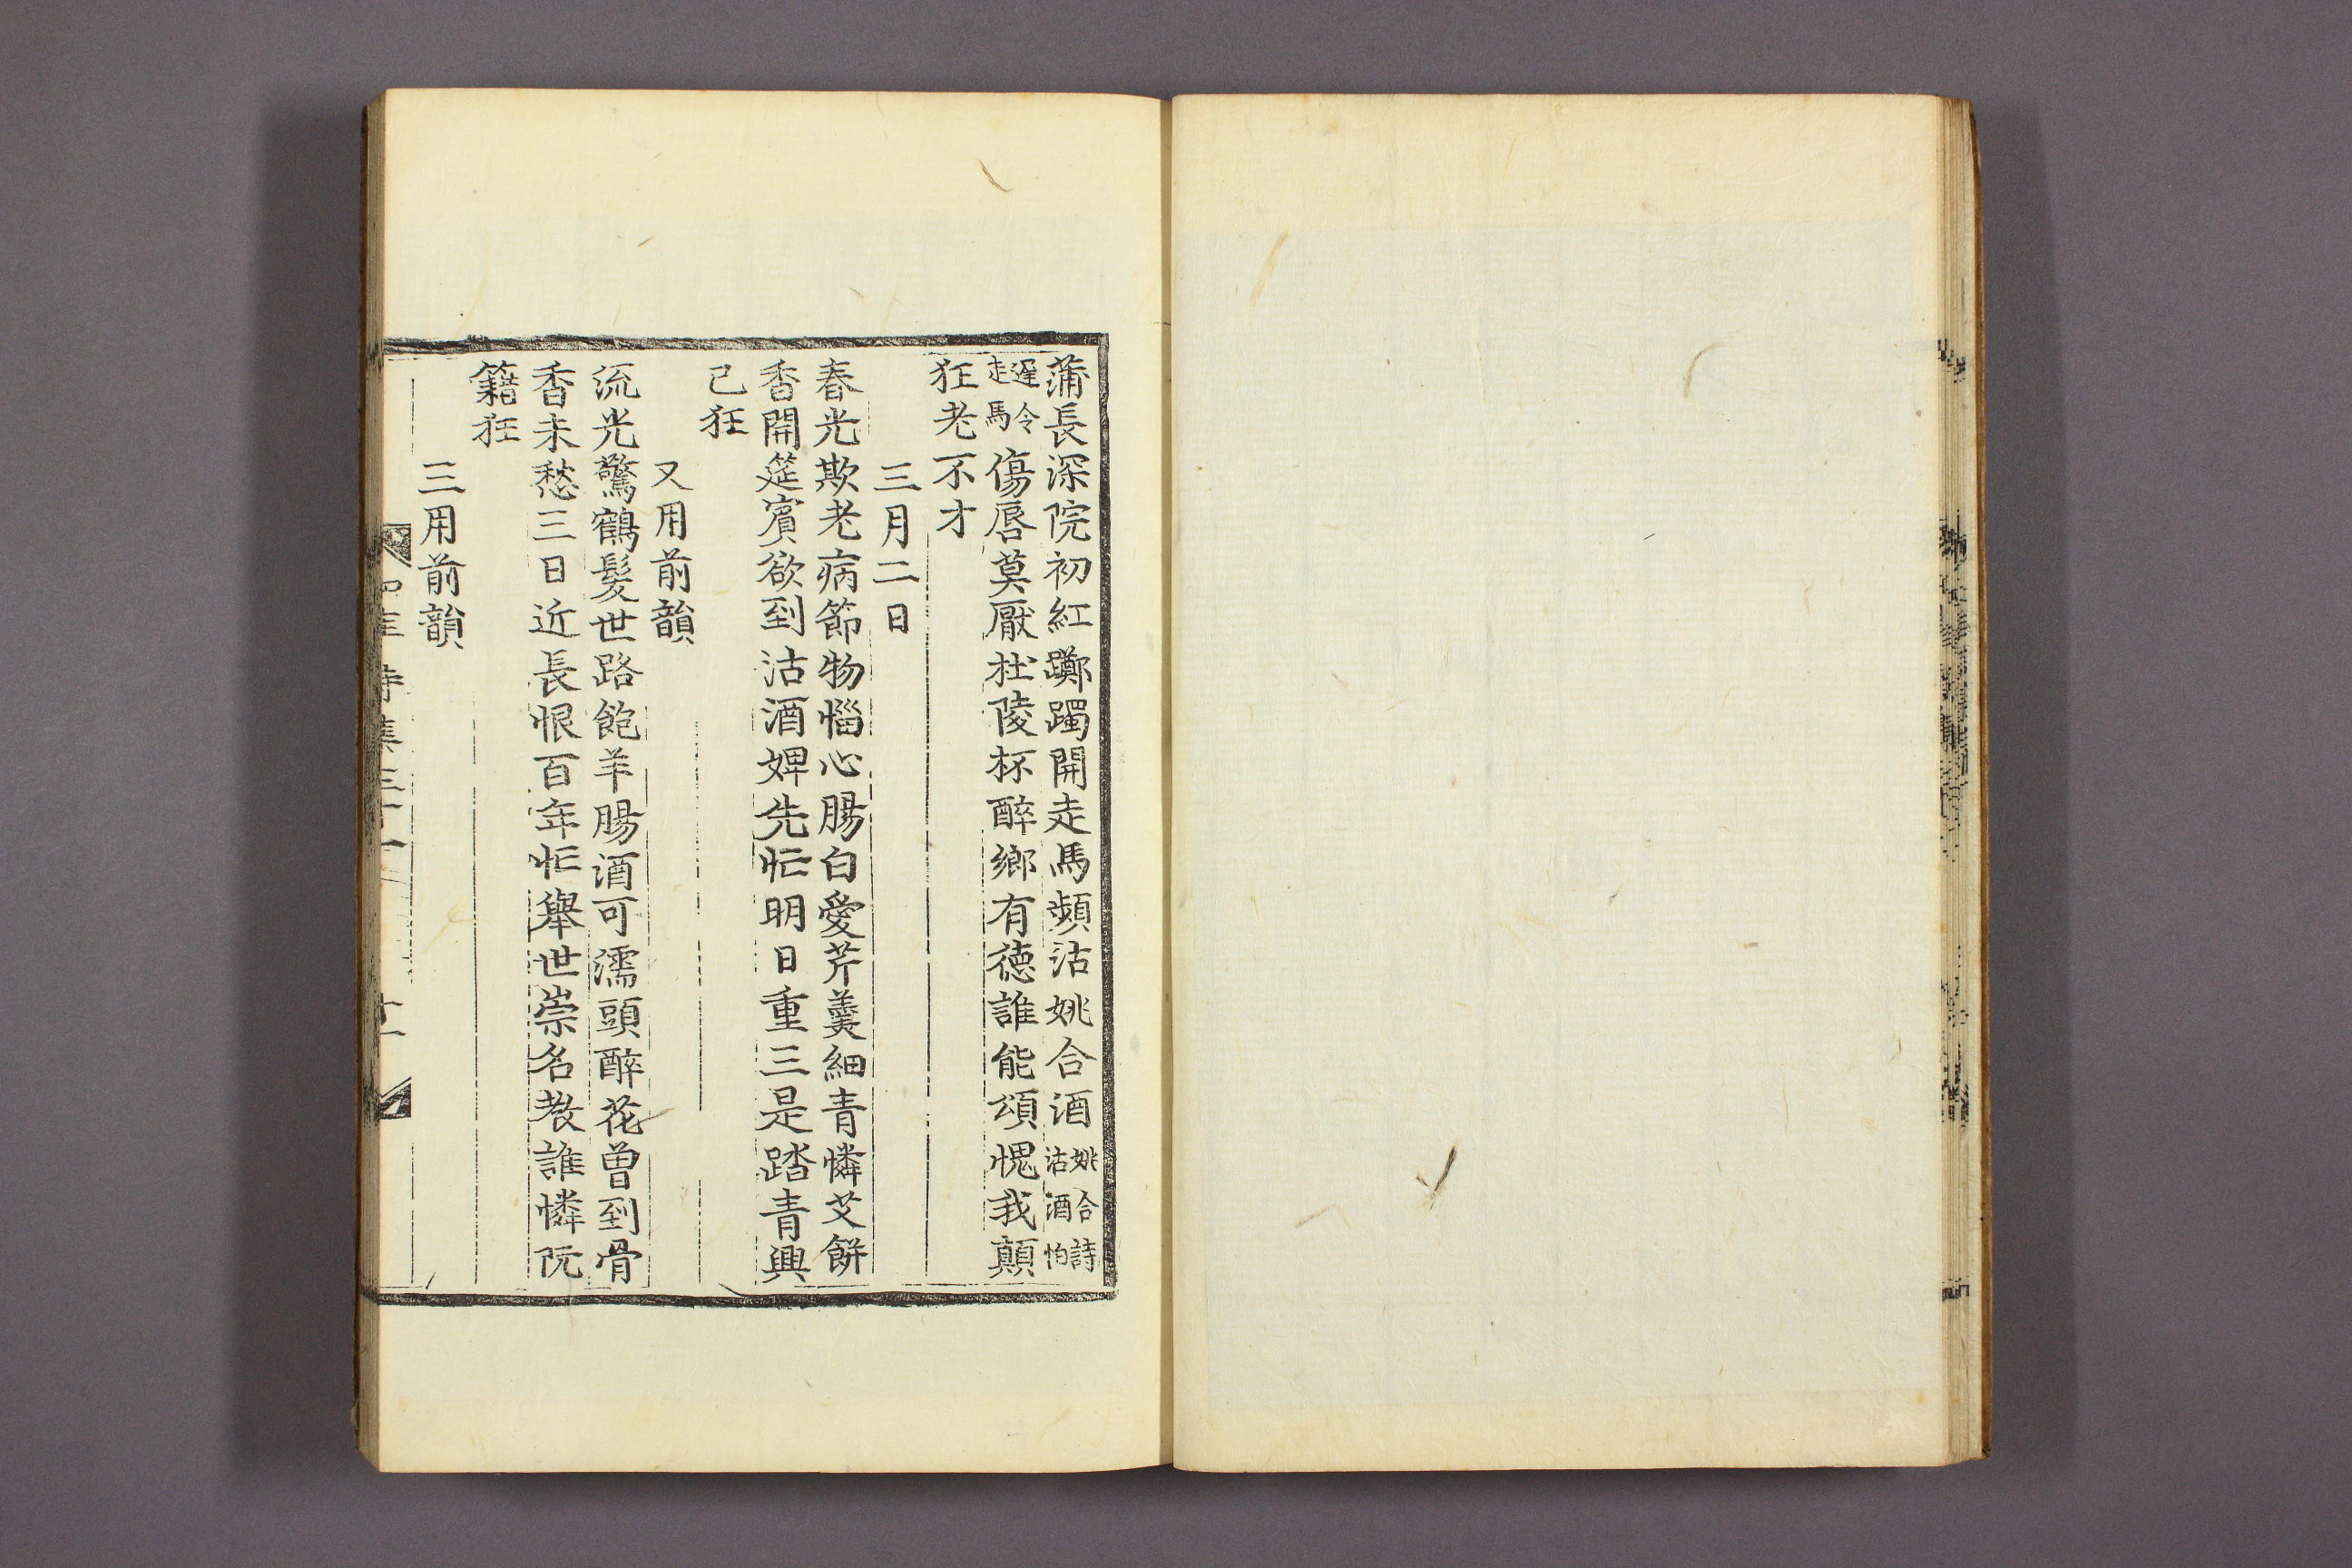 蒲長深院初紅躑躅開走馬頻沽姚合酒姚合詩沽酒怕
遲令走馬傷唇莫厭杜陵杯醉鄉有德誰能頌愧我顛
狂老不才
三月二日
春光欺老病節物惱心腸白愛芹羹細青憐艾餅
香開筵賓欲到沽酒婢先忙明日重三是踏青興
已狂
又用前韻
流光驚鶴髮世路飽羊腸酒可濡頭醉花曾到骨
香未愁三日近長恨百年忙舉世崇名教誰憐阮
籍狂
三用前韻